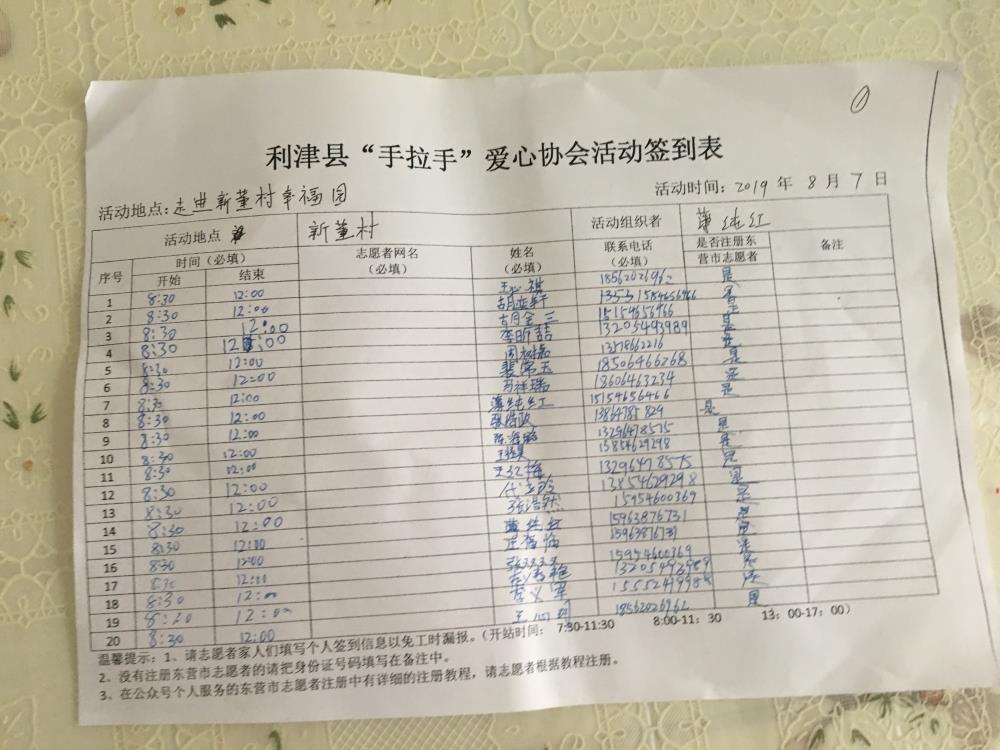 ①
利津县“手拉手”爱心协会活动签到表
活动地点:走进新董村幸福园 活动时间:2019年8月7日
活动地点 新董村 活动组织者 纯红
序号 时间(必填) 志愿者网名(必填) 姓名(必填) 联系电话(必填) 是否注册东营市志愿者 备注
开始 结束
1 8:30 12:00 是
2 8:30 12:00
3 8:30 12:00 胡金三 15154656966 是
4 8:30 12:00 李昕喆 13205493989 是
5 8:30 12:00 13178662216 是
6 8:30 12:00 裴常玉 18506466268 是
7 8:30 12:00 祥瑞 18606463234 是
8 8:30 12:00 15154656466 是
9 8:30 12:00 是
10 8:30 12:00 13296478575 是
11 8:30 12:00 13854629298 是
12 8:30 12:00 王红梅 13296478575 是
13 8:30 12:00 13854629298 是
14 8:30 12:00 张浩然 15954600369 是
15 8:30 12:00 15963876731 是
16 8:30 12:00 15963876731 是
17 8:30 12:00 15954600369 是
18 8:30 12:00 13205493989 是
19 8:30 12:00 李义军 是
20 8:30 12:00 18562026962 是
温馨提示:1、请志愿者家人们填写个人签到信息以免工时漏报。(开站时间: 7:30-11:30 8:00-11:30 13:00-17:00)
2、没有注册东营市志愿者的请把身份证号码填写在备注中。
3、在公众号个人服务的东营市志愿者注册中有详细的注册教程,请志愿者根据教程注册。